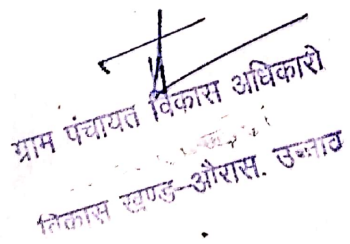 ग्राम पंचायत विकास अधिकारी
विकास खण्ड-औरास. उन्नाव